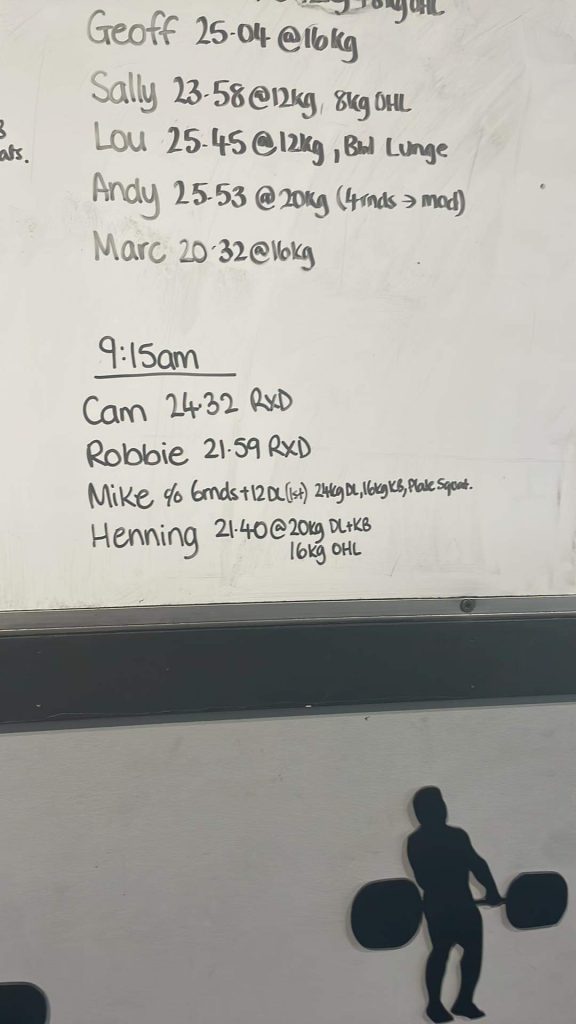 OHL
Geoff 25.04 @16kg
Sally 23.58@12kg, 8kg OHL
Lou 25.45@12kg, BW Lunge
Andy 25.53 @20kg (4rnds → mod)
Marc 20.32@16kg
9:15am
Cam 24.32 RXD
Robbie 21.59 RXD
Mike % 6rnds+12DL(1st) 24kgDL,16kgKB,Plate Squat.
Henning 21.40@20kg DL+KB
16kg OHL